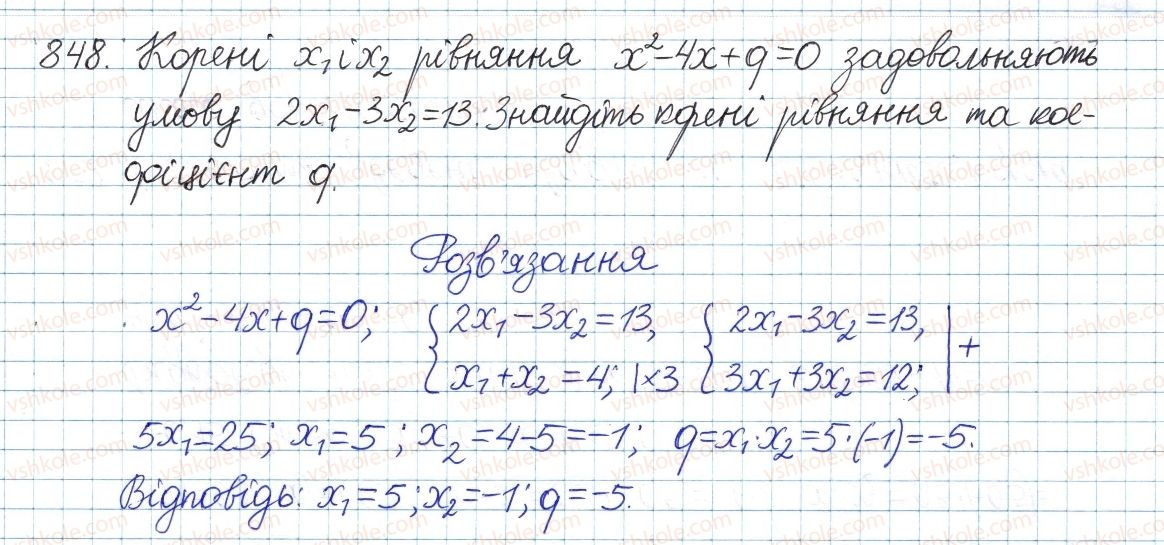 848. Корені x₁ і x₂ рівняння x² – 4x + q = 0 задовольняють
умову 2x₁ – 3x₂ = 13. Знайдіть корені рівняння та кое-
фіцієнт q.
Розв'язання
x² – 4x + q = 0; { 2x₁ – 3x₂ = 13, { 2x₁ – 3x₂ = 13, | +
x₁ + x₂ = 4; | ×3 3x₁ + 3x₂ = 12; |
5x₁ = 25; x₁ = 5; x₂ = 4 – 5 = –1; q = x₁·x₂ = 5·(–1) = –5.
Відповідь: x₁ = 5; x₂ = –1; q = –5.